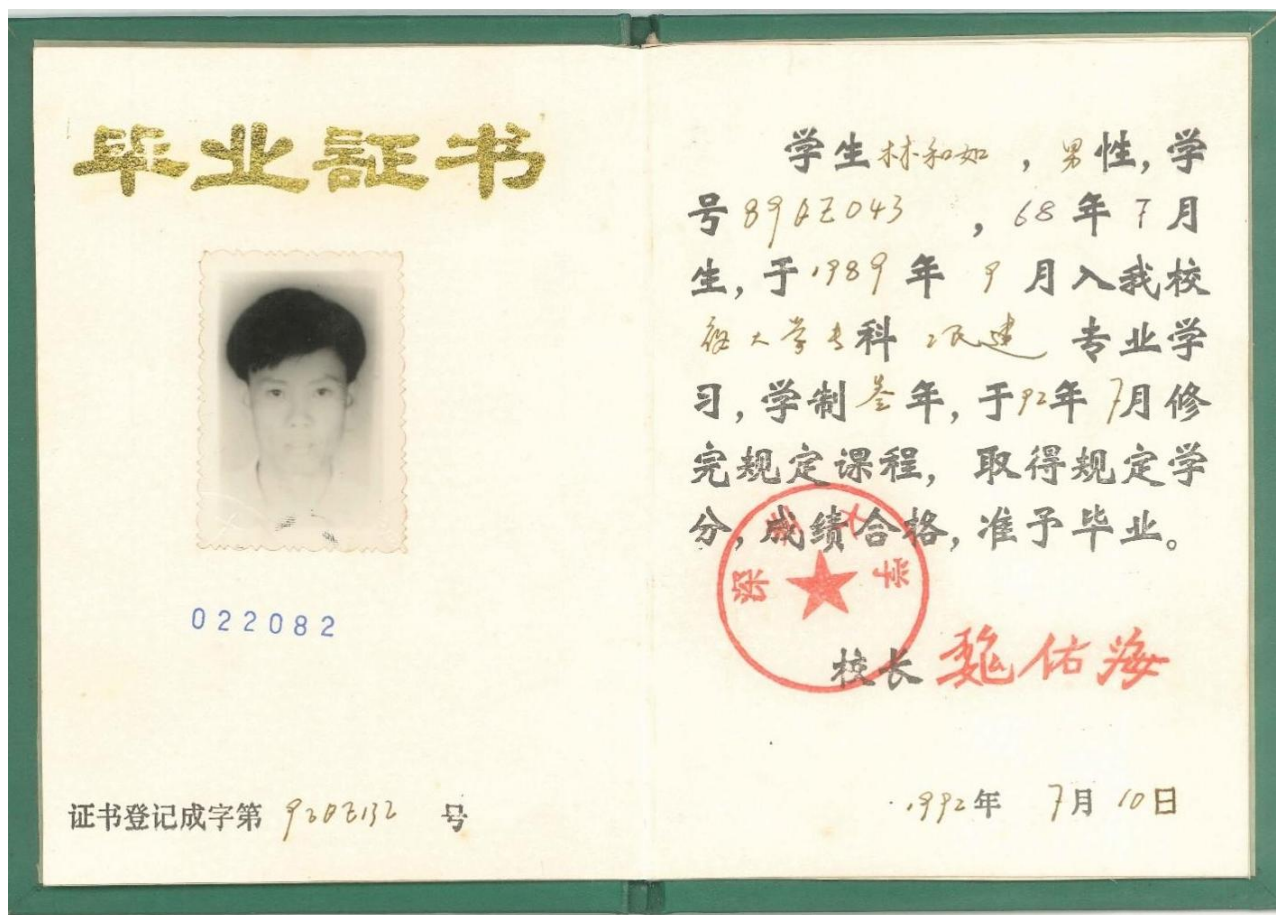 毕业証书
022082
证书登记成字第 920Z132 号
学生林和如，男性，学
号89QZ043，68年7月
生，于1989年9月入我校
夜大学专科 民建 专业学
习，学制叁年，于92年7月修
完规定课程，取得规定学
分，成绩合格，准予毕业。
深圳大学
校长 魏佑海
1992年7月10日